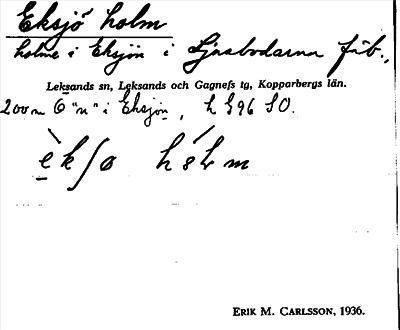 Eksjö holm
holme i Eksjön i Ljusbodarna fäb.,
Leksands sn, Leksands och Gagnefs tg, Kopparbergs län.
200 m O "n" i Eksjön, h 396 SO.
ekʃø
ERIK M. CARLSSON, 1936.